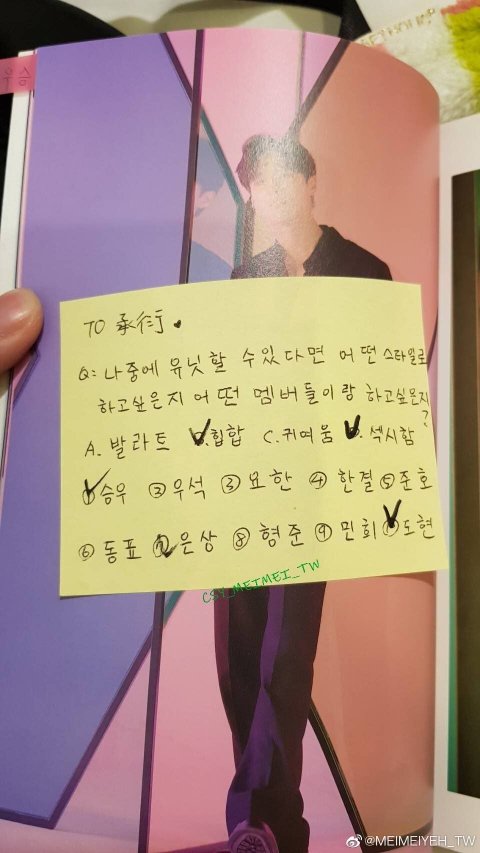 우승
TO 承衍
Q: 나중에 유닛할 수 있다면 어떤 스타일로
하고싶은지 어떤 멤버들이랑 하고싶은지?
A. 발라트 B. 힙합 C. 귀여움 D. 섹시함
① 승우 ② 우석 ③ 요한 ④ 한결 ⑤ 준호
⑥ 동표 ⑦ 은상 ⑧ 형준 ⑨ 민희 ⑩ 도현
CSY_MEIMEI_TW
@MEIMEIYEH_TW